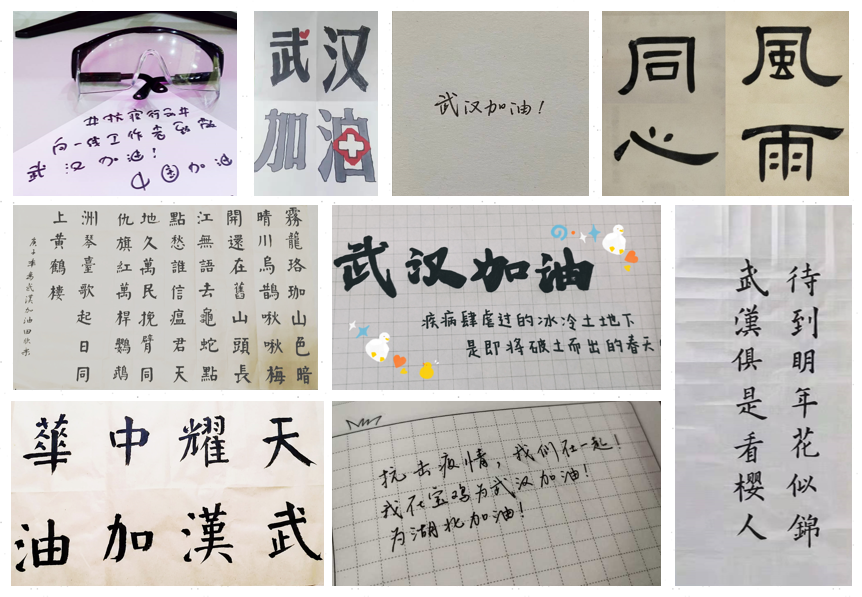 向一线工作者致敬
武汉加油!
中国加油
武汉
加油
武汉加油!
風雨
同心
霧龍珞珈山色暗
晴川烏鵲啾啾梅
開還在舊山頭長
江無語去龜蛇點
點愁誰信瘟君天
地久萬民挽臂同
仇旗紅萬桿鸚鵡
洲琴臺歌起日同
上黃鶴樓
庚子年為武漢加油
武汉加油
疾病肆虐过的冰冷土地下
是即将破土而出的春天!
待到明年花似錦
武漢俱是看櫻人
天耀中華
武漢加油
抗击疫情,我们在一起!
我在宝鸡为武汉加油!
为湖北加油!